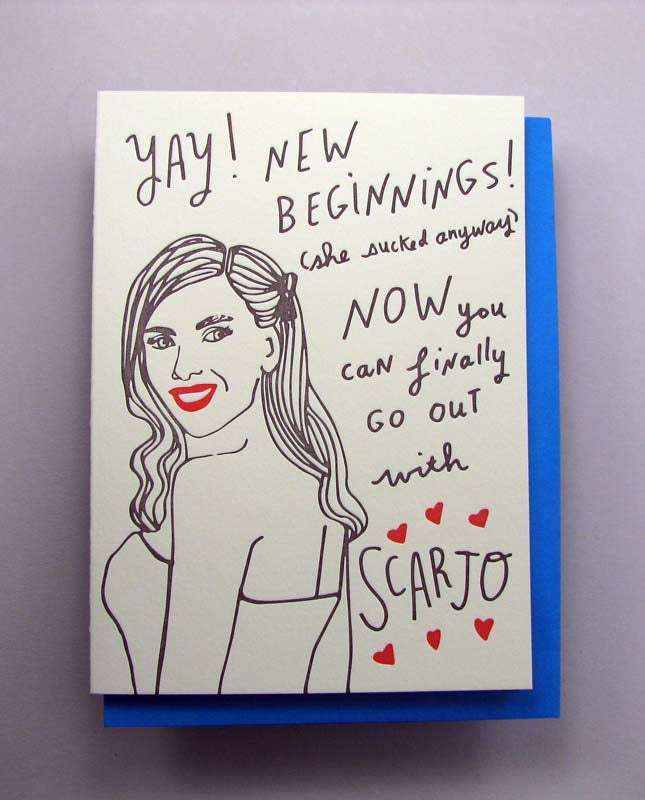 YAY! NEW
BEGINNINGS!
(she sucked anyway)
NOW you
can finally
GO OUT
with
SCARJO